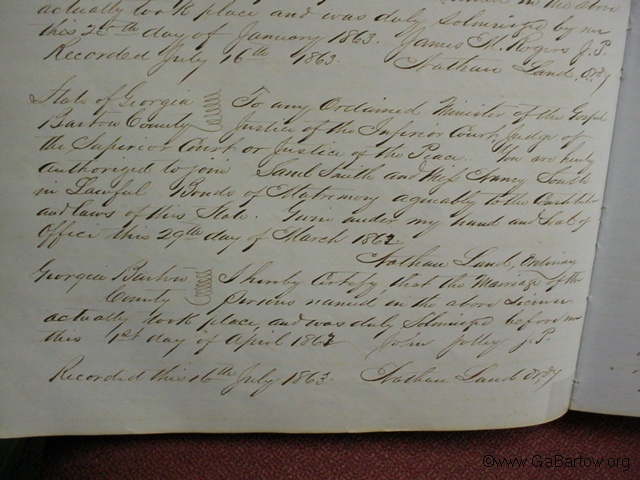 actually took place and was duly Solminized by me
this 25th day of January 1863. James M. Rogers J.P.
Recorded July 16th 1863. Nathan Land, Ord'y
State of Georgia To any Ordained Minister of the Gospel
Bartow County Justice of the Inferior Court, Judge of
the Superior Court or Justice of the Peace. You are hereby
authorized to join Saml Smith and Miss Nancy
in Lawful Bonds of Matrimony agreeably to the Constitution
and laws of this State. Given under my hand and Seal of
Office this 29th day of March 1862
Nathan Land, Ordinary
Georgia Bartow I hereby Certify that the Marriage of the
County persons named in the above License
actually took place, and was duly Solminized before me
this 1st day of April 1862 John Jolley J.P.
Recorded this 16th July 1863. Nathan Land Ord'y
©www.GaBartow.org